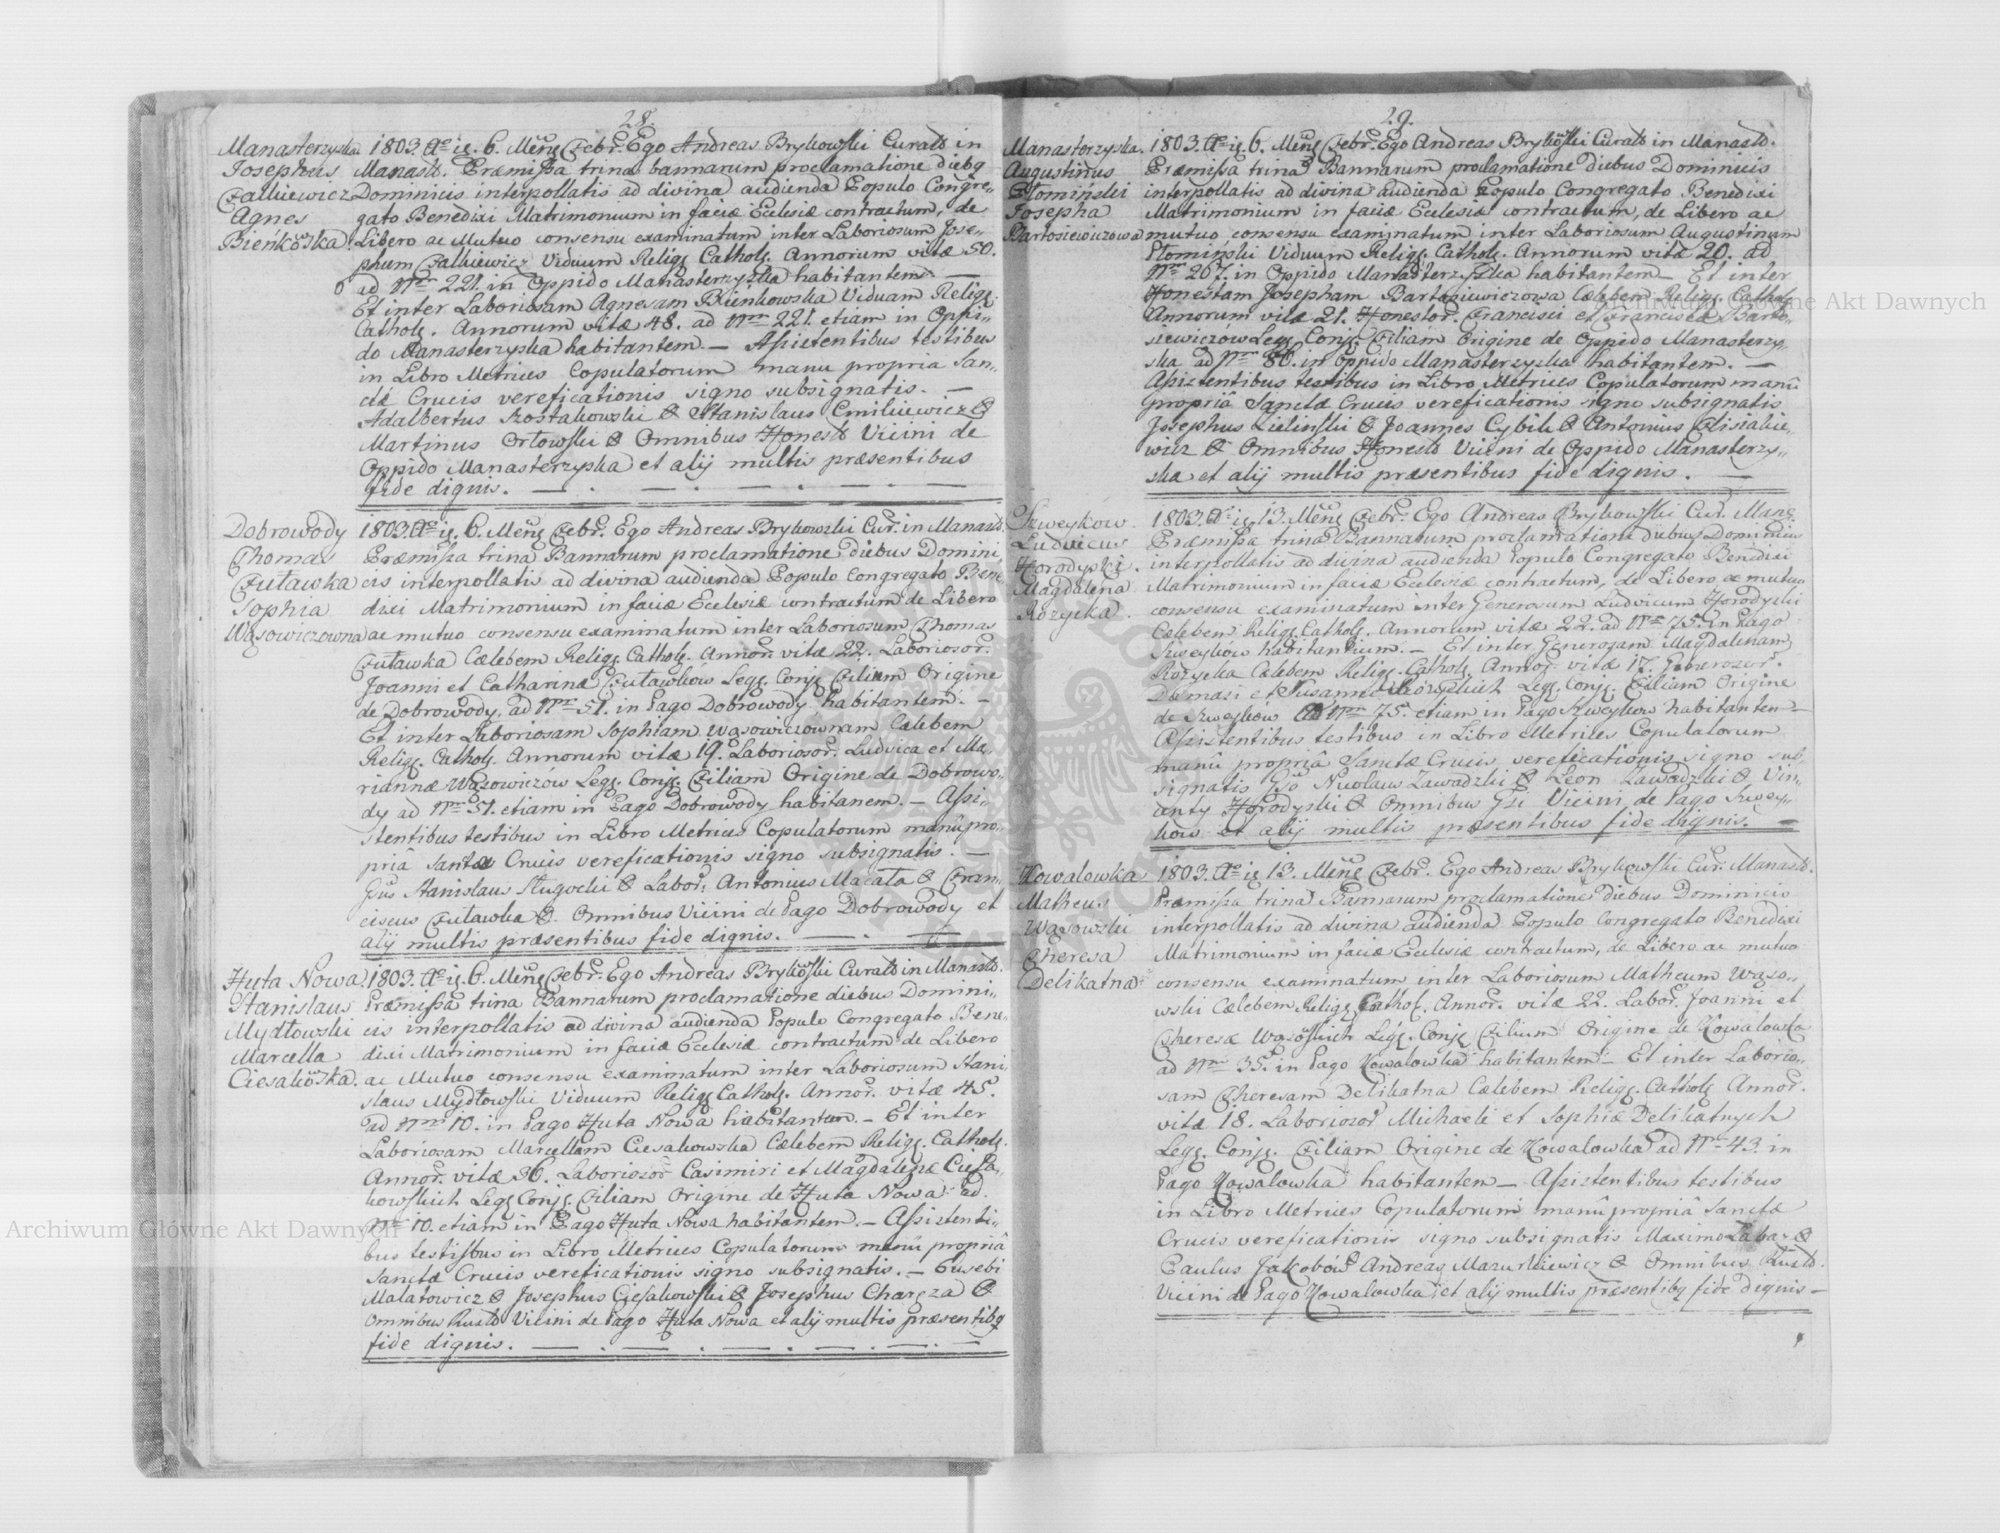 28.
Manasterzyska
Josephus
Falkiewicz
Agnes
Bieńkowska.
1803. Aō ię. 6. Menę Febr. Ego Andreas Brykowski Curatō in
Manastō. Præmissa trina bannarum proclamatione diebq
Dominicis interpollatis ad divina audienda Populo Congre-
gato Benedixi Matrimonium in faciæ Eclesiæ contractum, de
Libero ac Mutuo consensu examinatum inter Laboriosum Jose-
phum Falkiewicz Viduum Religę Catholę. Annorum vitæ 50.
ad Nrm 221. in Oppido Manasterzyska habitantem. —
Et inter Laboriosam Agnesam Bieńkowska Viduam Religę.
Catholę. Annorum vitæ 48. ad Nrm 221. etiam in Oppi-
do Manasterzyska habitantem. — Assistentibus testibus
in Libro Metrices Copulatorum manu propria San-
ctæ Crucis vereficationis signo subsignatis. —
Adalbertus Szostakowski & Stanislaus Emilkiewicz &
Martinus Orłowski & Omnibus Honestō Vicini de
Oppido Manasterzyska et alij multis præsentibus
fide dignis. — . — . — . — . —
Dobrowody
Thomas
Futawka
Sophia
Wąsowiczowna
1803. Aō ię. 6. Menę Febr. Ego Andreas Brykowski Cur. in Manastō.
Præmissa trina Bannarum proclamatione diebus Domini
cis interpollatis ad divina audienda Populo Congregato Bene
dixi Matrimonium in faciæ Eclesiæ contractum de Libero
ac mutuo consensu examinatum inter Laboriosum Thomas
Futawka Cælebem Religę Catholę. Annor. vitæ 22. Laboriosor.
Joanni et Catharinæ Futawkow Legę. Conję Filiam Origine
de Dobrowody, ad Nrm 51. in Pago Dobrowody habitantem. —
Et inter Laboriosam Sophiam Wąsowiczownam Cælebem
Religę. Catholę. Annorum vitæ 19. Laboriosor. Ludvica et Ma
riannæ Wąsowiczów Legę. Conję Filiam Origine de Dobrowo-
dy ad Nrm 51. etiam in Pago Dobrowody habitanem. — Assi-
stentibus testibus in Libro Metrices Copulatorum manû pro-
priâ Santæ Crucis vereficationis signo subsignatis. —
Gſus Stanislaus Sługocki & Labor: Antonius Macała & Fran-
ciscus Futawka & Omnibus Vicini de Pago Dobrowody et
alij multis præsentibus fide dignis. — . —
Huta Nowa.
Stanislaus
Mydłowski
Marcella
Ciesakowska.
1803. Aō ię. 6. Menę Febr. Ego Andreas Brykowski Curatō in Manastō.
Præmissa trina Bannarum proclamatione diebus Domini-
cis interpollatis ad divina audienda Populo Congregato Bene-
dixi Matrimonium in faciæ Eclesiæ contractum de Libero
ac Mutuo consensu examinatum inter Laboriosum Stani-
slaus Mydłowski Viduum Religę Catholę. Annor. vitæ 45.
ad Nrm 10. in Pago Huta Nowa habitantem. — Et inter
Laboriosam Marcellam Ciesakowska Cælebem Religę. Catholę.
Annor. vitæ 36. Laboriosor Casimiri et Magdalenæ Ciesa-
kowskich Legę Conję. Filiam Origine de Huta Nowa ad.
Nrm 10. etiam in Pago Huta Nowa habitantem. — Assistenti-
bus testibus in Libro Metrices Copulatorum manû propriâ
Sanctæ Crucis vereficationis signo subsignatis. — Eusebi
Malatowicz & Josephus Ciesakowski & Josephus Charęza &
Omnibus Rustō Vicini de Pago Huta Nowa et alij multis præsentibq
fide dignis. — . — . — . — . —
29.
Manasterzyska.
Augustinus
Płomiński
Josepha
Bartosiewiczowa
1803. Aō ię. 6. Menę Febr. Ego Andreas Brykowski Curatō in Manastō.
Præmissa trina Bannarum proclamatione diebus Dominicis
interpollatis ad divina audienda Populo Congregato Benedixi
Matrimonium in faciæ Eclesiæ contractum, de Libero ac
mutuo consensu examinatum inter Laboriosum Augustinum
Płomiński Viduum Religę. Catholę. Annorum vitæ 20. ad
Nrm 267. in Oppido Manasterzyska habitantem — Et inter
Honestam Josepham Bartosiewiczowa Cælebem Religę. Catholę
Annorum vitæ 21. Honestor. Francisci et Franciscæ Barto-
siewiczów Legę. Conję Filiam Origine de Oppido Manasterzy-
ska ad Nrm 86. in Oppido Manasterzyska habitantem. —
Assistentibus testibus in Libro Metrices Copulatorum manû
propriâ Sanctæ Crucis vereficationis signo subsignatis
Josephus Zieliński & Joannes Cybik & Antonius Elisiakie-
wicz & Omnibus Honestō Vicini de Oppido Manasterzy-
ska et alij multis præsentibus fide dignis. —
Szweyków
Ludvicus
Horodyski.
Magdalena
Rozycka.
1803. Aō ię. 13. Menę Febr. Ego Andreas Brykowski Cur. Manę.
Præmissa trina Bannarum proclamatione diebus Dominicis
interpollatis ad divina audienda Populo Congregato Benedixi
Matrimonium in faciæ Eclesiæ contractum, de Libero ac mutuo
consensu examinatum inter Generosum Ludvicum Horodyski
Cælebem Religę. Catholę. Annorum vitæ 22. ad Nrm 75. in Pago
Szweyków habitantium. — Et inter Generosam Magdalenam
Rozycka Cælebem Religę. Catholę Annor. vitæ 17. Generosor.
Thomasi et Susanna Rożyckich Legę. Conję. Filiam Origine
de Szweyków ad Nrm 75. etiam in Pago Szweykow habitantem —
Assistentibus testibus in Libro Metrices Copulatorum
manû propriâ Sanctæ Crucis vereficationis signo sub-
signatis Gſō Nicolaus Zawadzki & Leon Zawadzki & Vin-
centy Horodyski & Omnibus Gſi Vicini, de Pago Szwey-
kow et alij multis præsentibus fide dignis. —
Kowalowka
Matheus
Wąsowski
Theresa
Delikatna
1803. Aō ię 13. Menę Febr. Ego Andreas Brykowski Cur. Manastō.
Præmissa trina Bannarum proclamatione diebus Dominicis
interpollatis ad divina audienda Populo Congregato Benedixi
Matrimonium in faciæ Eclesiæ contractum, de Libero ac mutuo
consensu examinatum inter Laboriosum Matheum Wąso-
wski Cælebem Religę Catholę. Annor. vitæ 22. Labor. Joanni et
Theresæ Wąsowskich Legę. Conję Filium Origine de Kowalowka
ad Nrm 35. in Pago Kowalowka habitantem — Et inter Laborio-
sam Theresam Delikatna Cælebem Religę. Catholę Annor.
vitæ 18. Laboriosor Michaeli et Sophiæ Delikatnych
Legę. Conję. Filiam Origine de Kowalowka ad Nrm 43. in
Pago Kowalowka habitantem — Assistentibus testibus
in Libro Metrices Copulatorum manû propriâ Sanctæ
Crucis vereficationis signo subsignatis Maximo Labaz &
Paulus Jakobów Andreas Mazurkiewicz & Omnibus Rustō.
Vicini de Pago Kowalowka et alij multis præsentibq fide dignis —
Archiwum Główne Akt Dawnych
Archiwum Główne Akt Dawnych